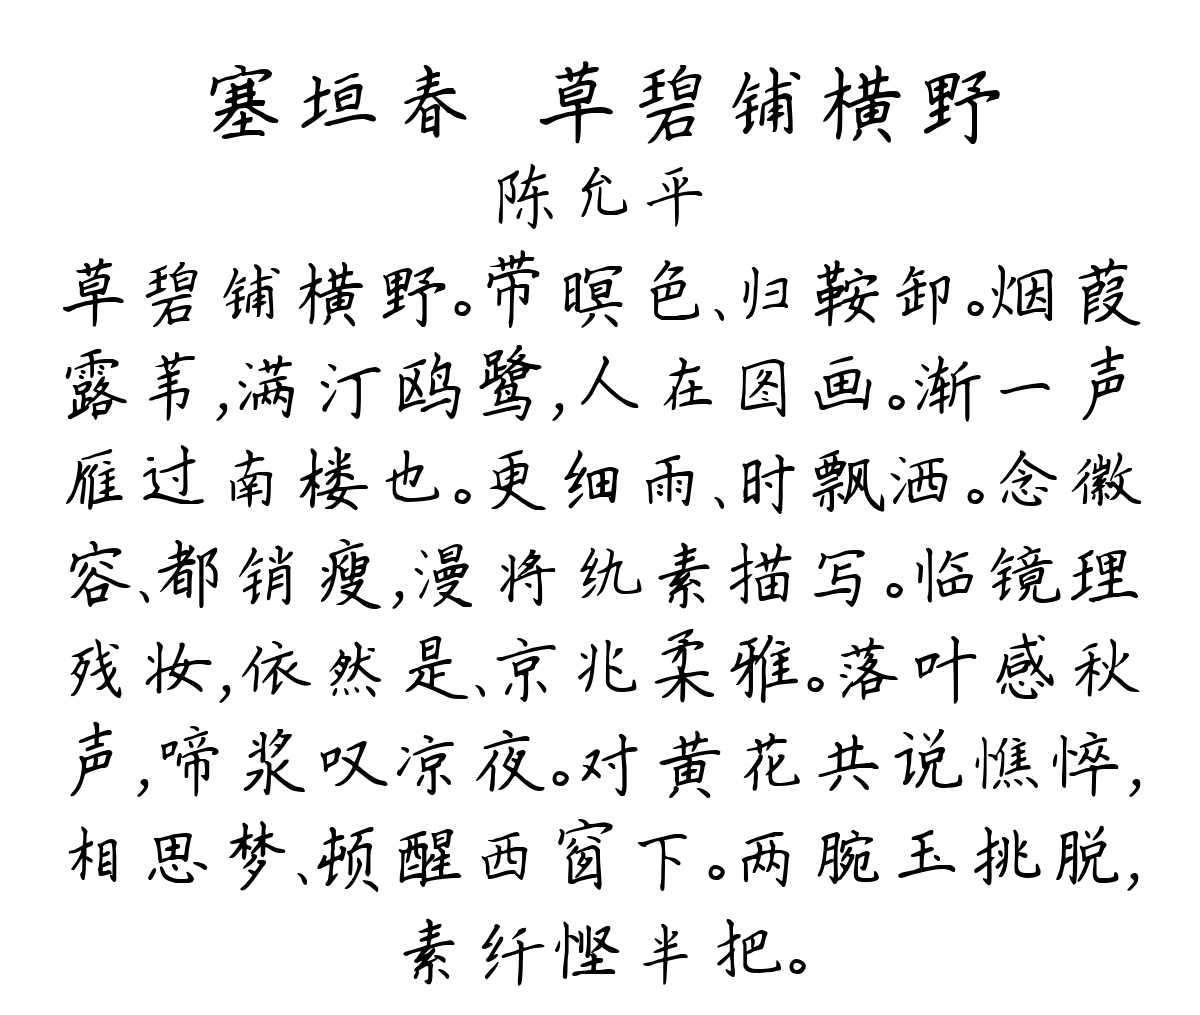 塞垣春 草碧铺横野
陈允平
草碧铺横野。带暝色、归鞍卸。烟葭
露苇,满汀鸥鹭,人在图画。渐一声
雁过南楼也。更细雨、时飘洒。念徽
容、都销瘦,漫将纨素描写。临镜理
残妆,依然是、京兆柔雅。落叶感秋
声,啼螀叹凉夜。对黄花共说憔悴,
相思梦、顿醒西窗下。两腕玉挑脱,
素纤悭半把。